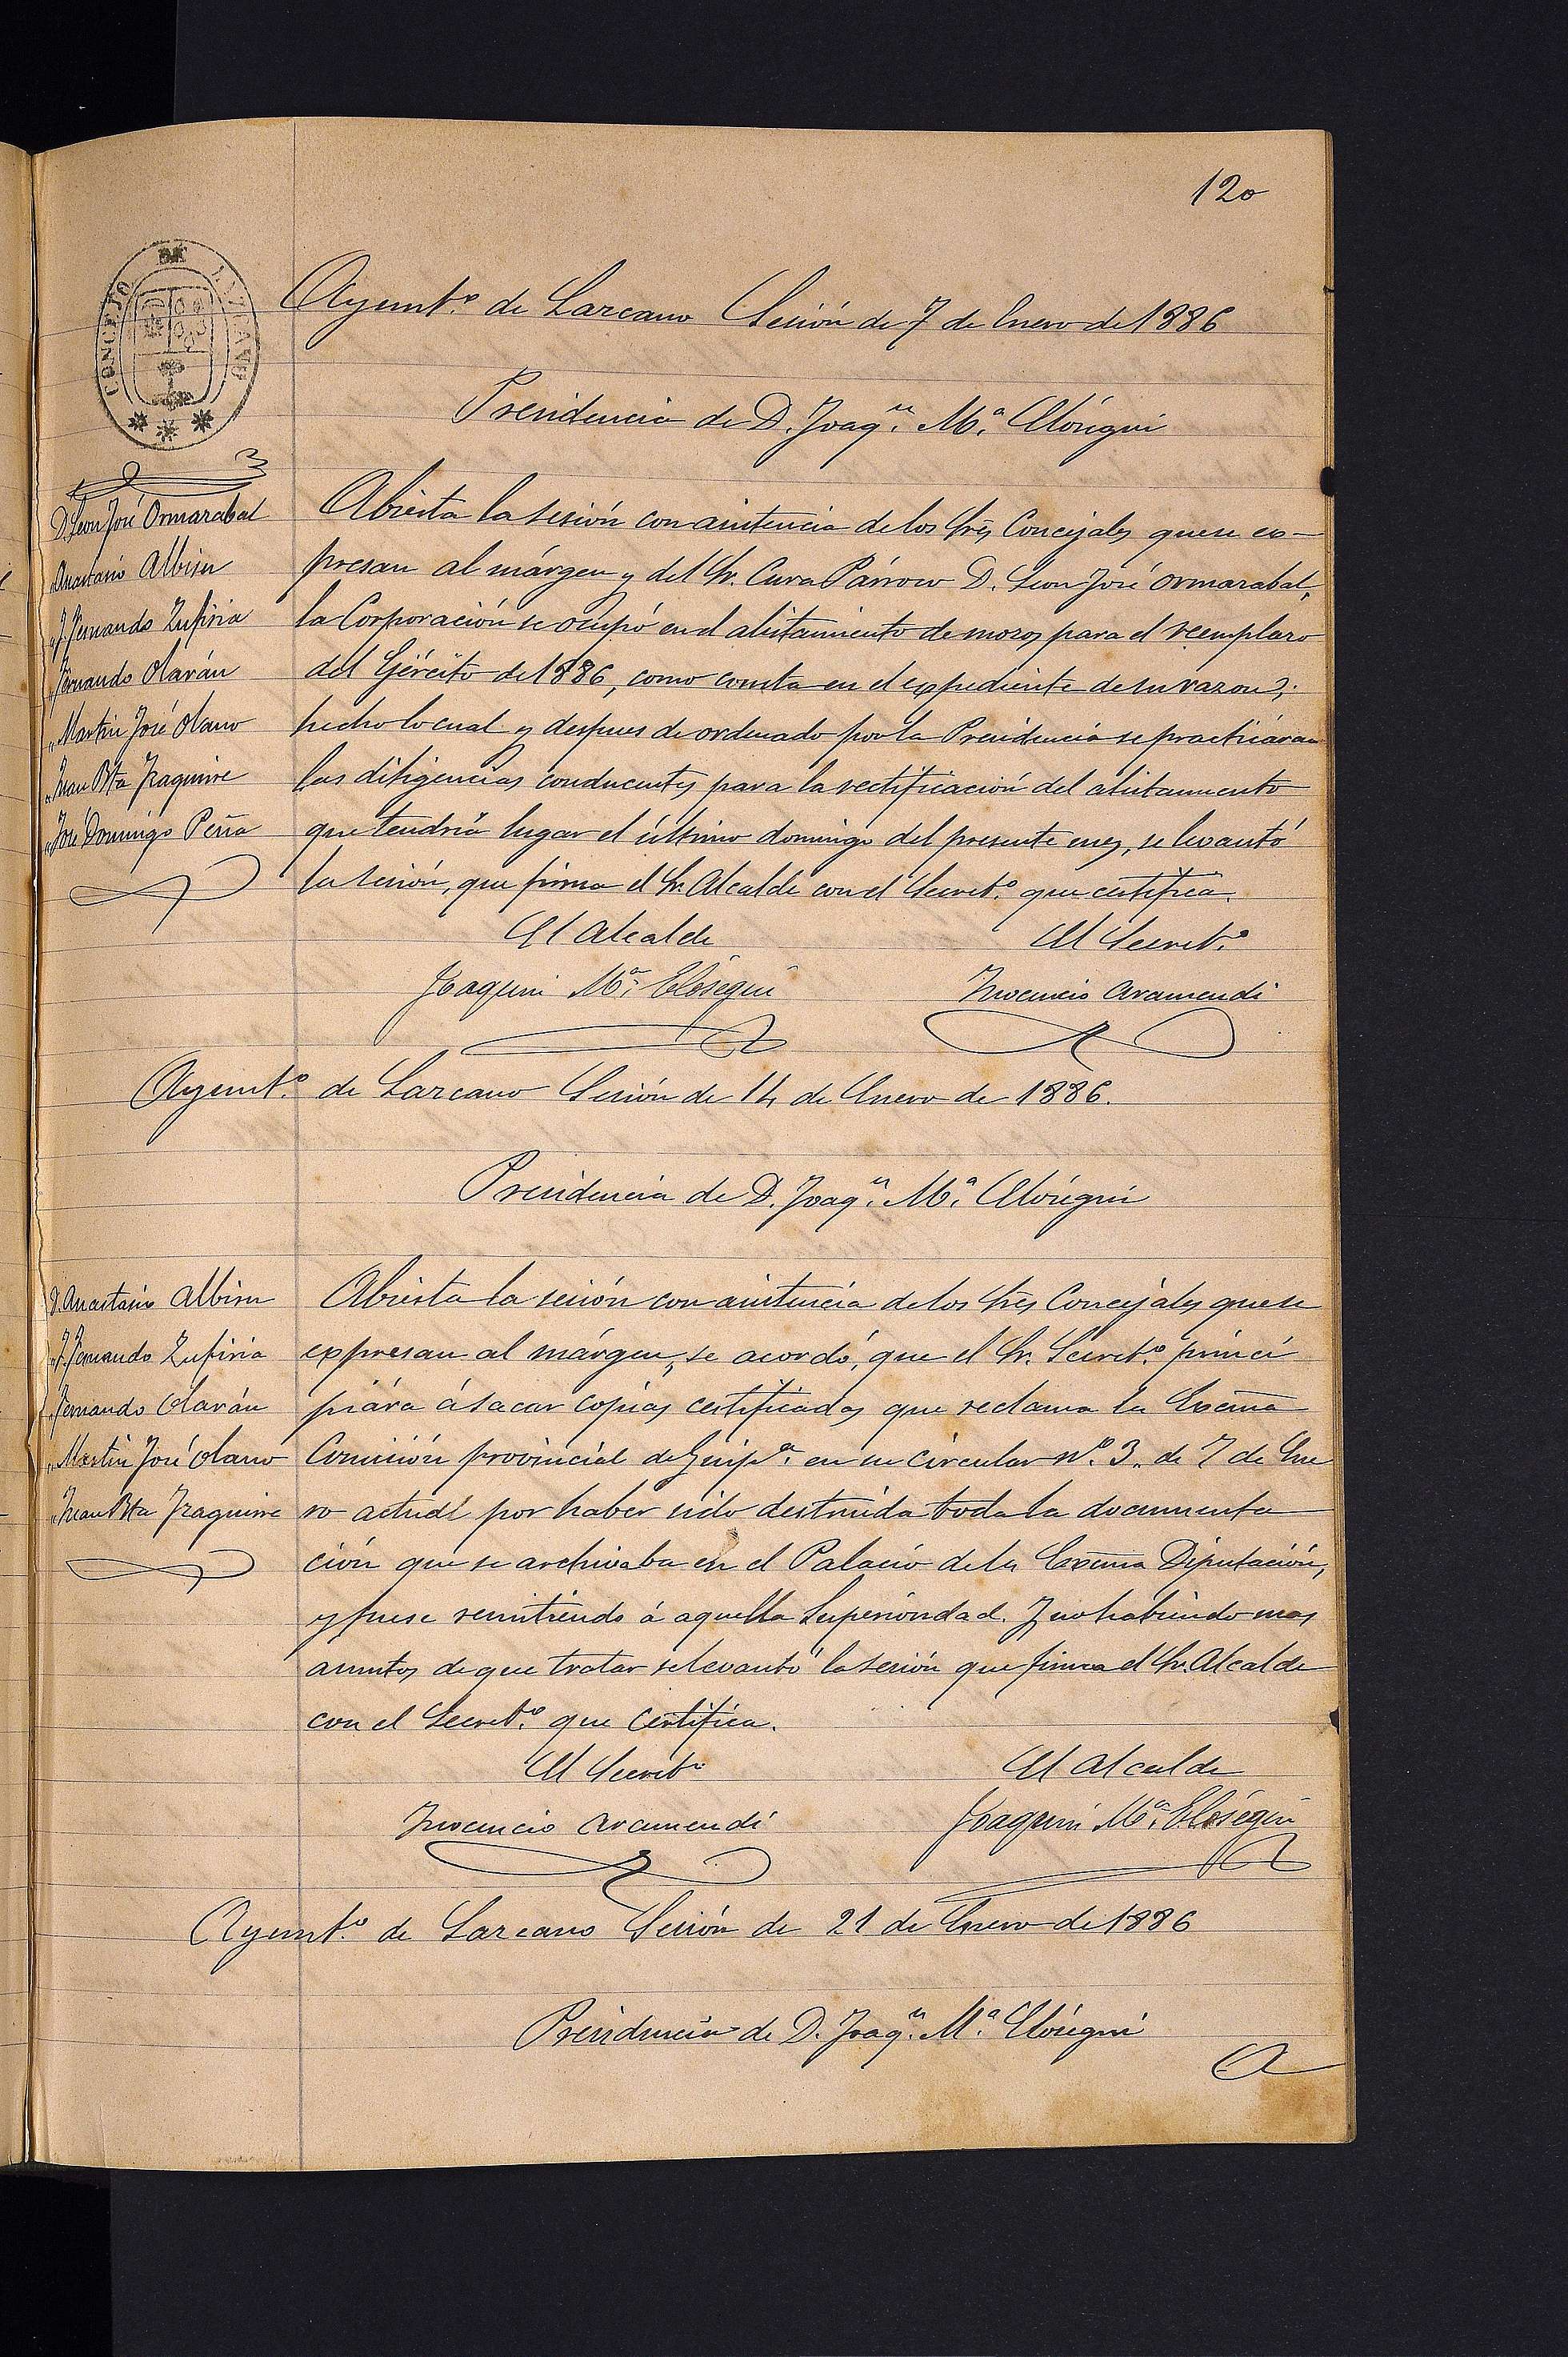 120
CONCEJO DE LAZCANO
Ayunt.º de Lazcano Sesión de 7 de Enero de 1886
Presidencia de D. Joaq.n M.a Elósegui
D. Leon José Ormazabal
" Anastasio Albisu
" J. Fernando Zufiria
" Fernando Olarán
" Martin José Olano
" Juan Bta Yraguirre
" José Domingo Peña
Abierta la sesión con asistencia de los Sres Concejales que se ex-
presan al márgen y del Sr. Cura Párroco D. Leon José Ormazabal,
la Corporación se ocupó en el alistamiento de mozos para el reemplazo
del Ejército de 1886, como consta en el expediente de su razon;
hecho lo cual y despues de ordenado por la Presidencia se practicáran
las diligencias conducentes para la rectificación del alistamiento
que tendría lugar el último domingo del presente mes, se levantó
la sesión, que firma el Sr. Alcalde con el Secret.º que certifica.
El Alcalde
El Secret.º
Joaquin M.a Elósegui
Inocencio Aramendi
Ayunt.º de Lazcano Sesión de 14 de Enero de 1886.
Presidencia de D. Joaq.n M.a Elósegui
D. Anastasio Albisu
" J. Fernando Zufiria
" Fernando Olarán
" Martin José Olano
" Juan Bta Yraguirre
Abierta la sesión con asistencia de los Sres Concejales que se
expresan al márgen, se acordó, que el Sr. Secret.º princi
piára á sacar copias certificadas que reclama la Excma
Comisión provincial de Guip.a en su circular nº. 3, de 7 de Ene
ro actual por haber sido destruida toda la documenta
ción que se archivaba en el Palacio de la Excma Diputación,
y fuese remitiendo á aquella Superioridad. Y no habiendo mas
asuntos de que tratar se levantó la sesión que firma el Sr. Alcalde
con el Secret.º que certifica.
El Secret.º
El Alcalde
Inocencio Aramendi
Joaquin M.a Elósegui
Ayunt.º de Lazcano Sesión de 21 de Enero de 1886
Presidencia de D. Joaq.n M.a Elósegui
A